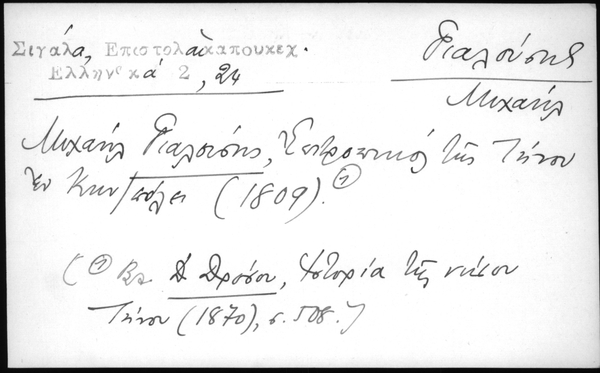 Σιγάλα, Επιστολαὶ καπουκεχ.
Ελληνικά 2, 24
Γιαλούσης
Μιχαήλ
Μιχαήλ Γιαλούσης, Ἐπιτροπικός τῆς Τήνου
ἐν Κων/πόλει (1809).①
(① Βλ. Δ. Δρόσου, Ἱστορία τῆς νήσου
Τήνου (1870), σ. 508.)